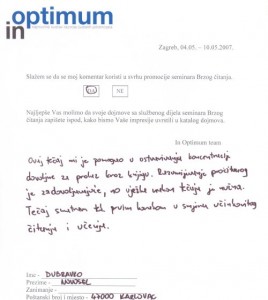 in optimum
Zagreb, 04.05. – 10.05.2007.
Slažem se da se moj komentar koristi u svrhu promocije seminara Brzog čitanja.
DA NE
Najljepše Vas molimo da svoje dojmove sa službenog dijela seminara Brzog
čitanja zapišete ispod, kako bismo Vaše impresije uvrstili u katalog dojmova.
In Optimum team
Ovaj tečaj mi je pomogao u ostvarivanju koncentracije
dovoljne za prolaz kroz knjigu. Razumijevanje pročitanog
je zadovoljavajuće, no vježba nakon tečaja je nužna.
Tečaj smatram tek prvim korakom u smjeru učinkovitog
čitanja i učenja.
Ime - DUBRAVKO
Prezime - NOVOSEL
Zanimanje -
Poštanski broj i mjesto - 47000 KARLOVAC